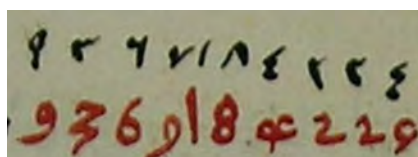 ٩ ٣ ٦ ٧ ١ ٨ ٤ ٢ ٢ ٤
9 3 6 1 8 2 2